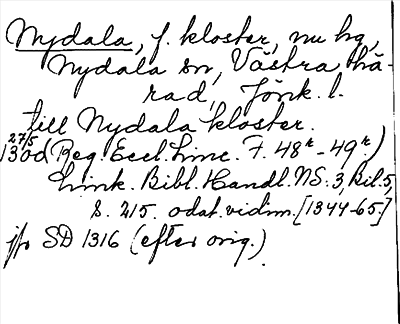 Nydala, f. kloster, nu hg,
Nydala sn, Västra hä-
rad, Jönk. l.
till Nydala kloster.
27/5
1308 (Reg. Eccl. Linc. F. 48r - 49r)
Link. Bibl. Handl. NS. 3, Bil. 5,
s. 215. odat. vidim. [1344-65.]
jfr SD 1316 (efter orig.)